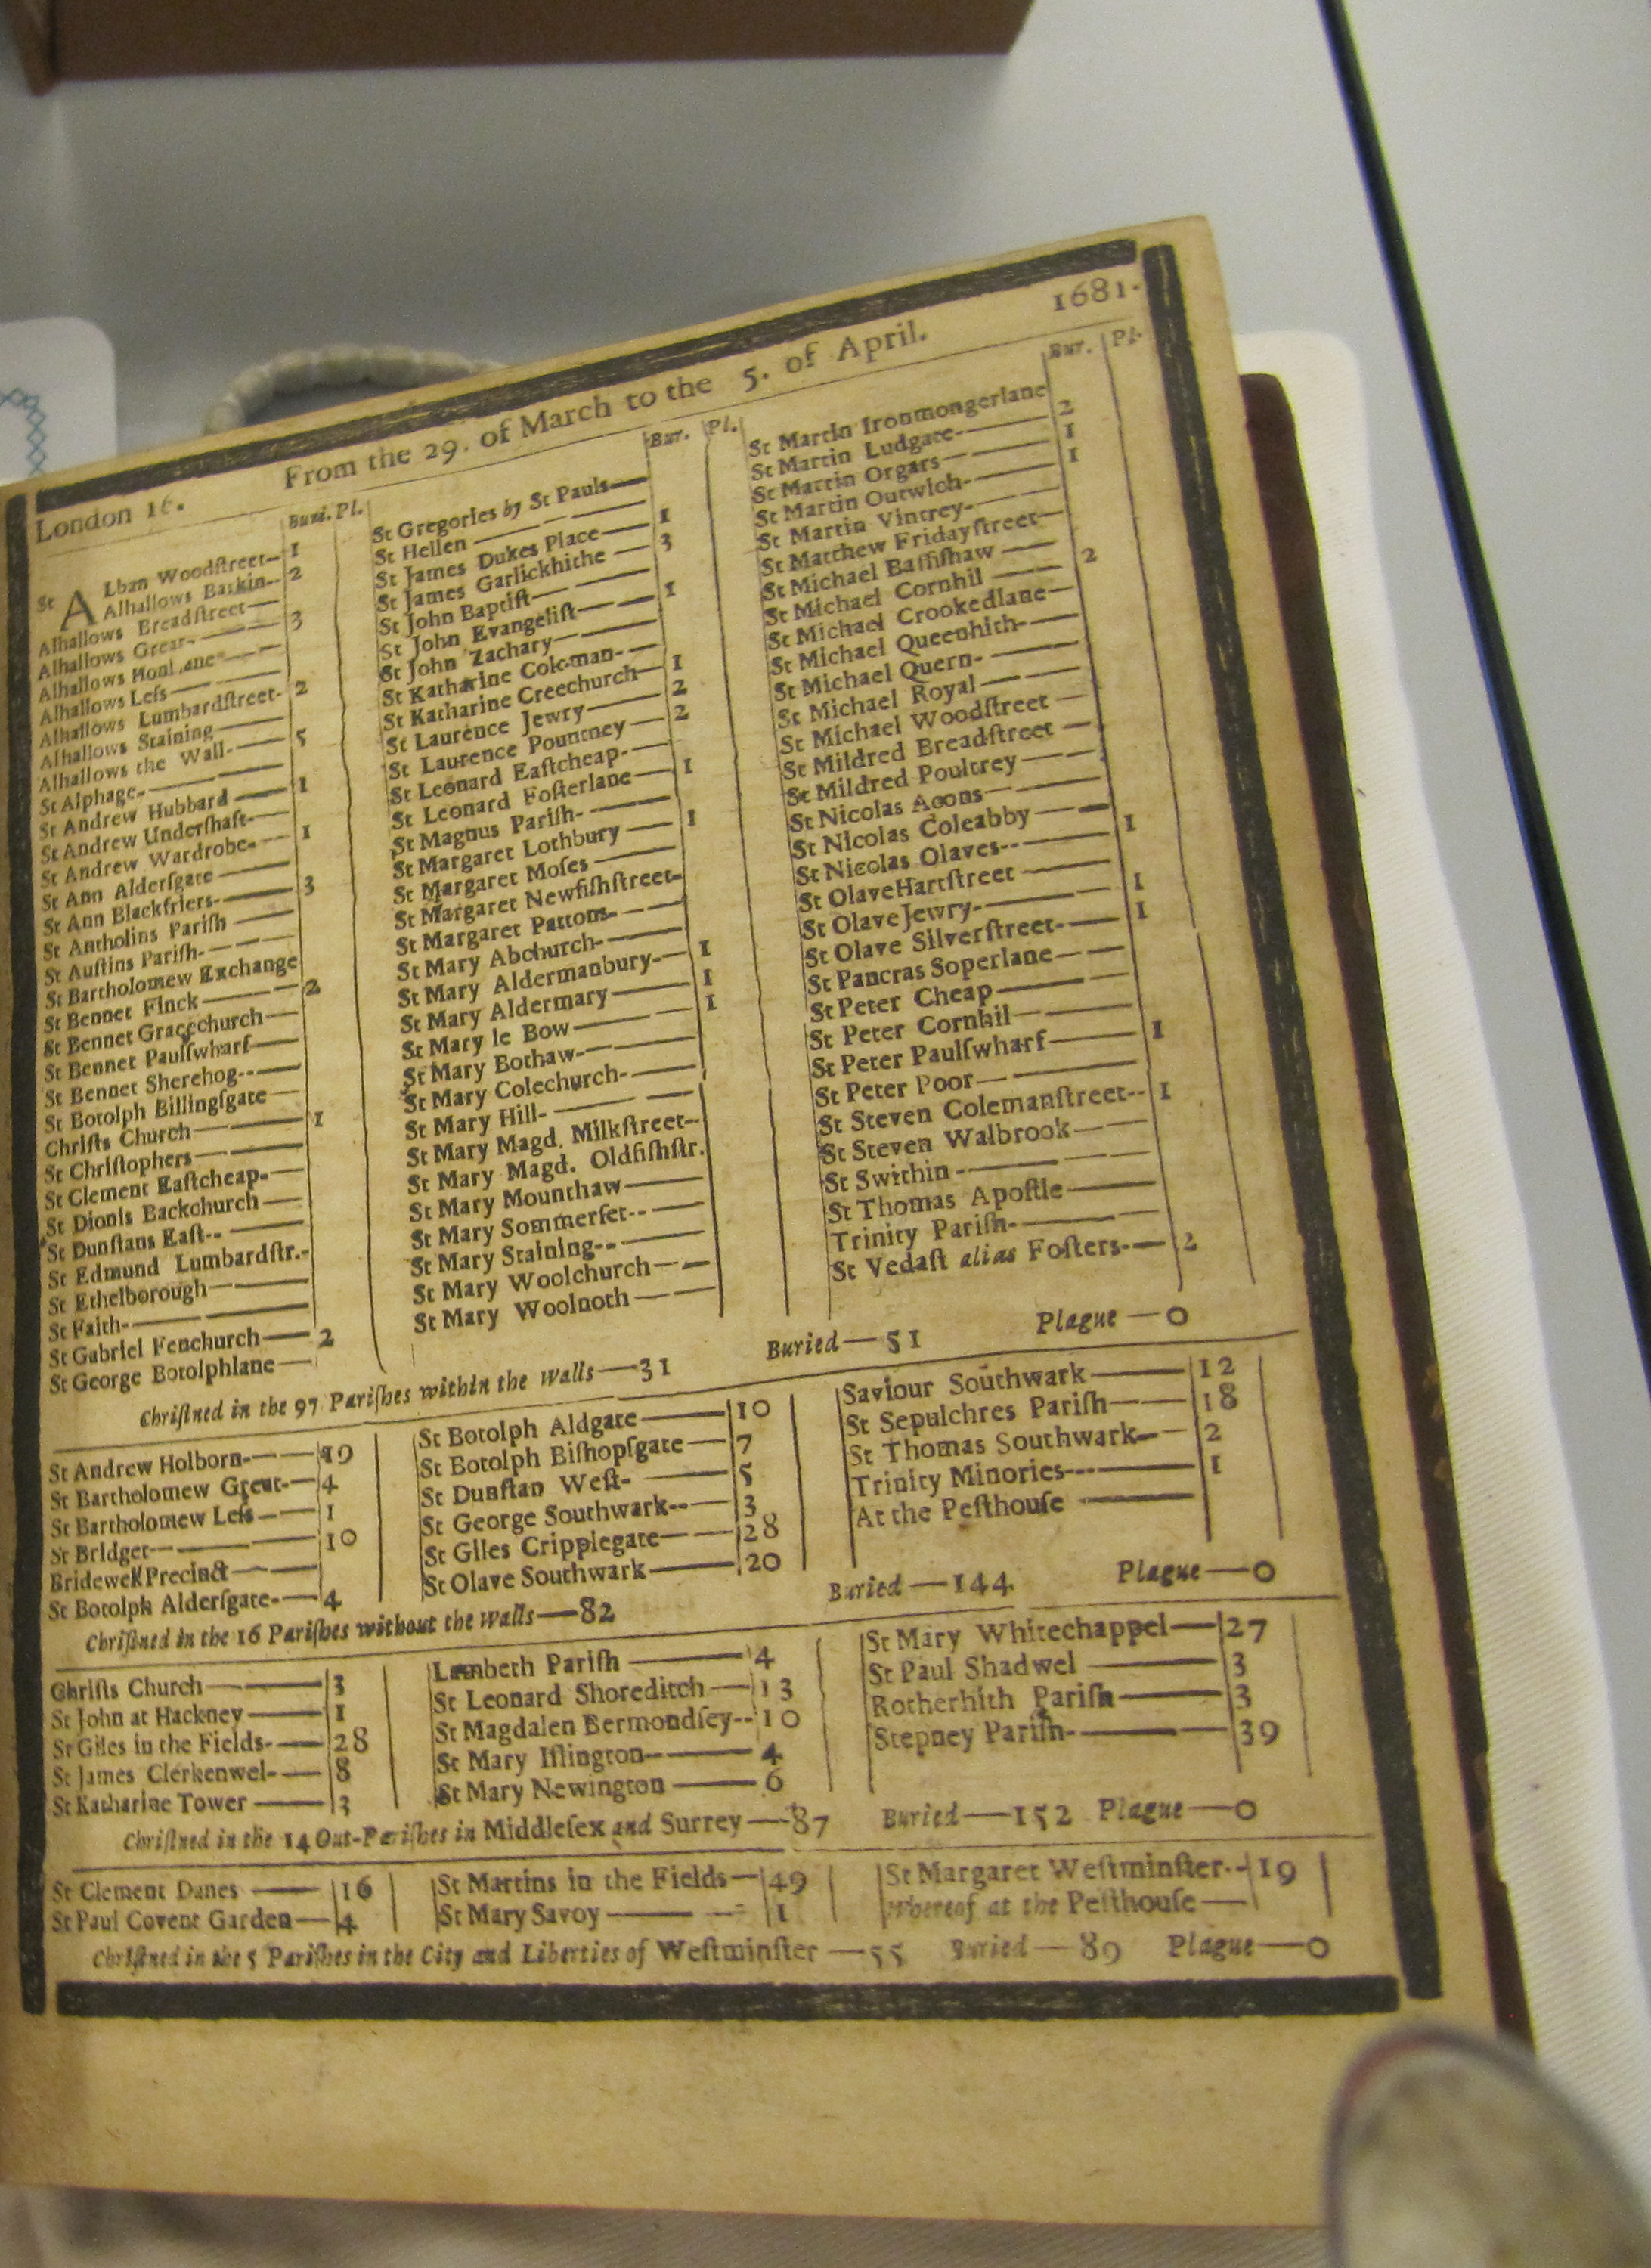 London 16. From the 29. of March to the 5. of April. 1681.
Buri. Pl.
St ALban Woodſtreet-- 1
Alhallows Barkin-- 2
Alhallows Breadſtreet—
Alhallows Great- —— 3
Alhallows HonLane- ——
Alhallows Leſs——
Alhallows Lumbardſtreet- 2
Alhallows Staining——
Alhallows the Wall- —— 5
St Alphage- ——
St Andrew Hubbard —— 1
St Andrew Underſhaft-—
St Andrew Wardrobe- — 1
St Ann Alderſgate ——
St Ann Blackfriers- —— 3
St Antholins Pariſh ——
St Auſtins Pariſh- ——
St Bartholomew Exchange
St Bennet Finck —— 2
St Bennet Gracechurch—
St Bennet Paulſwharf—
St Bennet Sherehog-- —
St Botolph Billingſgate —
Chriſts Church —— 1
St Chriſtophers ——
St Clement Eaſtcheap- —
St Dionis Backchurch —
St Dunſtans Eaſt-- ——
St Edmund Lumbardſtr.-
St Ethelborough ——
St Faith- ——
St Gabriel Fenchurch— 2
St George Botolphlane —
Bur. Pl.
St Gregories by St Pauls—
St Hellen ——
St James Dukes Place— 1
St James Garlickhithe — 3
St John Baptiſt——
St John Evangeliſt—— 1
St John Zachary——
St Katharine Coleman- —
St Katharine Creechurch— 1
St Laurence Jewry—— 2
St Laurence Pountney — 2
St Leonard Eaſtcheap- —
St Leonard Foſterlane— 1
St Magnus Pariſh- ——
St Margaret Lothbury — 1
St Margaret Moſes ——
St Margaret Newfiſhſtreet-
St Margaret Pattons- —
St Mary Abchurch- ——
St Mary Aldermanbury- — 1
St Mary Aldermary —— 1
St Mary le Bow —— 1
St Mary Bothaw- ——
St Mary Colechurch- ——
St Mary Hill- ——
St Mary Magd. Milkſtreet--
St Mary Magd. Oldfiſhſtr.
St Mary Mounthaw ——
St Mary Sommerſet-- —
St Mary Staining-- ——
St Mary Woolchurch——
St Mary Woolnoth ——
Bur. Pl.
St Martin Ironmongerlane
St Martin Ludgate- —— 2
St Martin Orgars —— 1
St Martin Outwich- —— 1
St Martin Vintrey- ——
St Matthew Fridayſtreet—
St Michael Baſſiſhaw ——
St Michael Cornhil —— 2
St Michael Crookedlane—
St Michael Queenhith- —
St Michael Quern- ——
St Michael Royal ——
St Michael Woodſtreet —
St Mildred Breadſtreet —
St Mildred Poultrey ——
St Nicolas Acons ——
St Nicolas Coleabby ——
St Nicolas Olaves-- —— 1
St Olave Hartſtreet ——
St Olave Jewry- —— 1
St Olave Silverſtreet- — 1
St Pancras Soperlane ——
St Peter Cheap ——
St Peter Cornhil ——
St Peter Paulſwharf —— 1
St Peter Poor ——
St Steven Colemanſtreet-- 1
St Steven Walbrook ——
St Swithin - ——
St Thomas Apoſtle ——
Trinity Pariſh- ——
St Vedaſt alias Foſters- — 2
Chriſtned in the 97 Pariſhes within the Walls — 31 Buried — 51 Plague — 0
St Andrew Holborn- —— 19
St Bartholomew Great- — 4
St Bartholomew Leſs —— 1
St Bridget —— 10
Bridewel Precinct ——
St Botolph Alderſgate- — 4
St Botolph Aldgate —— 10
St Botolph Biſhopſgate — 7
St Dunſtan Weſt- —— 5
St George Southwark-- — 3
St Giles Cripplegate —— 28
St Olave Southwark —— 20
Saviour Southwark —— 12
St Sepulchres Pariſh —— 18
St Thomas Southwark- — 2
Trinity Minories-- —— 1
At the Peſthouſe ——
Chriſtned in the 16 Pariſhes without the Walls — 82 Buried — 144 Plague — 0
Chriſts Church —— 3
St John at Hackney —— 1
St Giles in the Fields- — 28
St James Clerkenwel- — 8
St Katharine Tower —— 3
Lambeth Pariſh —— 4
St Leonard Shoreditch — 13
St Magdalen Bermondſey-- 10
St Mary Iſlington- —— 4
St Mary Newington —— 6
St Mary Whitechappel— 27
St Paul Shadwel —— 3
Rotherhith Pariſh —— 3
Stepney Pariſh- —— 39
Chriſtned in the 14 Out-Pariſhes in Middleſex and Surrey — 87 Buried — 152 Plague — 0
St Clement Danes —— 16
St Paul Covent Garden — 4
St Martins in the Fields — 49
St Mary Savoy —— 1
St Margaret Weſtminſter-- 19
Whereof at the Peſthouſe —
Chriſtned in the 5 Pariſhes in the City and Liberties of Weſtminſter — 55 Buried — 89 Plague — 0